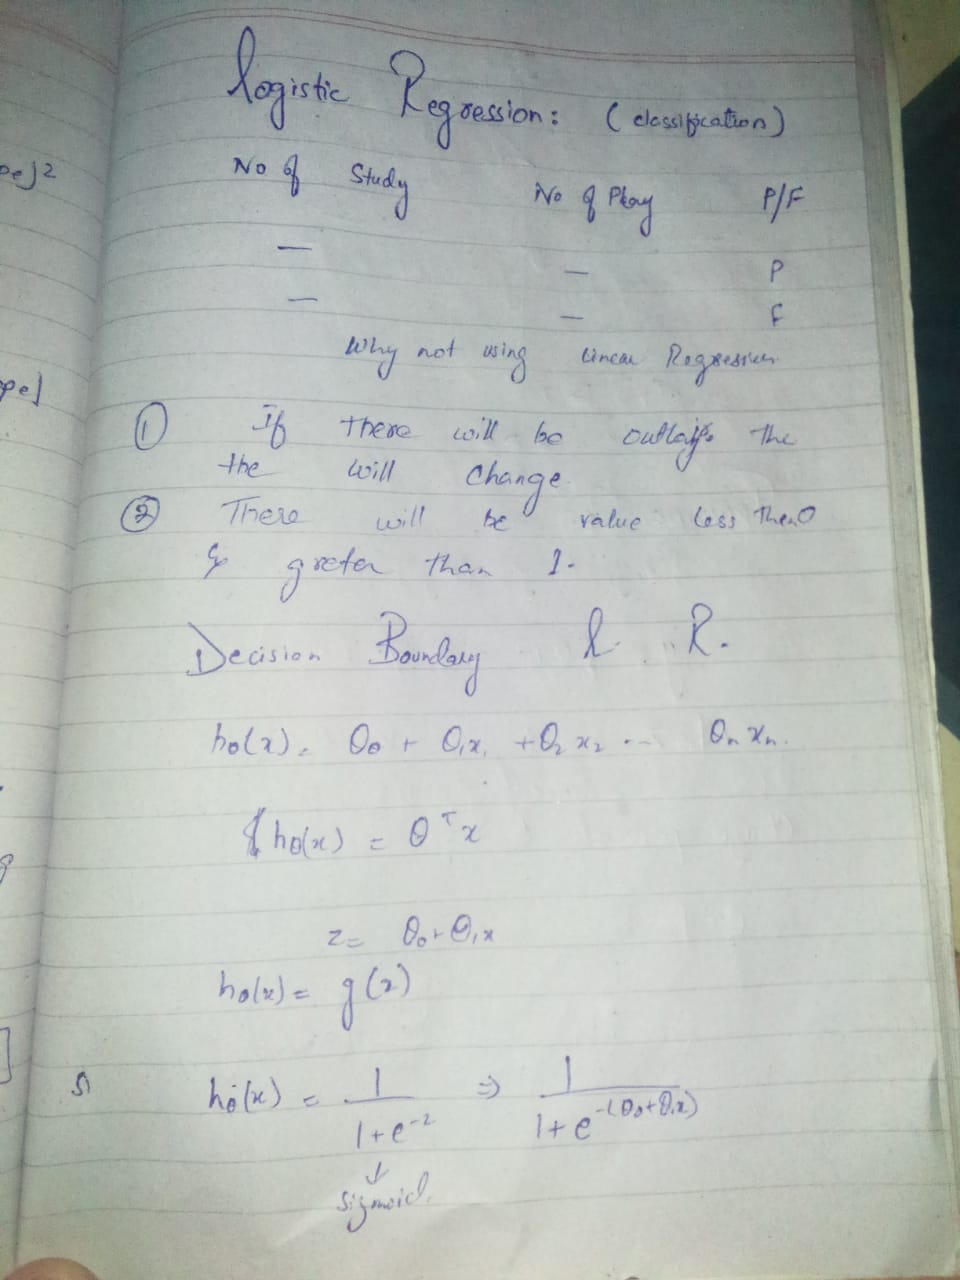 Logistic Regression: (classification)
No of Study No of Play P/F
— — P
— — F
Why not using Linear Regression
① If there will be the
the will change
② There will be value less then 0
& greter than 1.
Decision Boundary L. R.
hθ(x) = θ0 + θ1x1 + θ2x2 -- θnxn.
hθ(x) = θᵀx
z = θ0 + θ1x
hθ(x) = g(z)
hθ(x) = 1/(1+e^-z) ⇒ 1/(1+e^-(θ0+θ1x))
↓
sigmoid.
pe]²
pe]